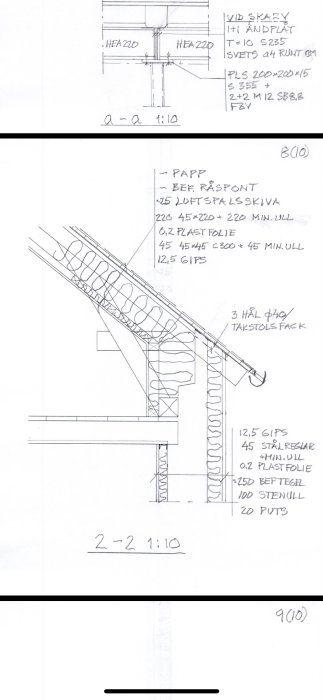 VID SKARV
1+1 ÄNDPLÅT
T=10 S235
SVETS a4 RUNT OM
HEA220
HEA220
PLS 200×200×15
S 355 +
2+2 M12 S8.8
FBV
a-a 1:10
8(10)
- PAPP
- BEF. RÅSPONT
~25 LUFTSPALSSKIVA
220 45×220 + 220 MIN.ULL
0,2 PLASTFOLIE
45 45×45 C300 + 45 MIN.ULL
12,5 GIPS
3 HÅL ϕ40/
TAKSTOLSFACK
12,5 GIPS
45 STÅLREGLAR
+MIN.ULL
0,2 PLASTFOLIE
~250 BEF TEGEL
100 STENULL
20 PUTS
2-2 1:10
9(10)